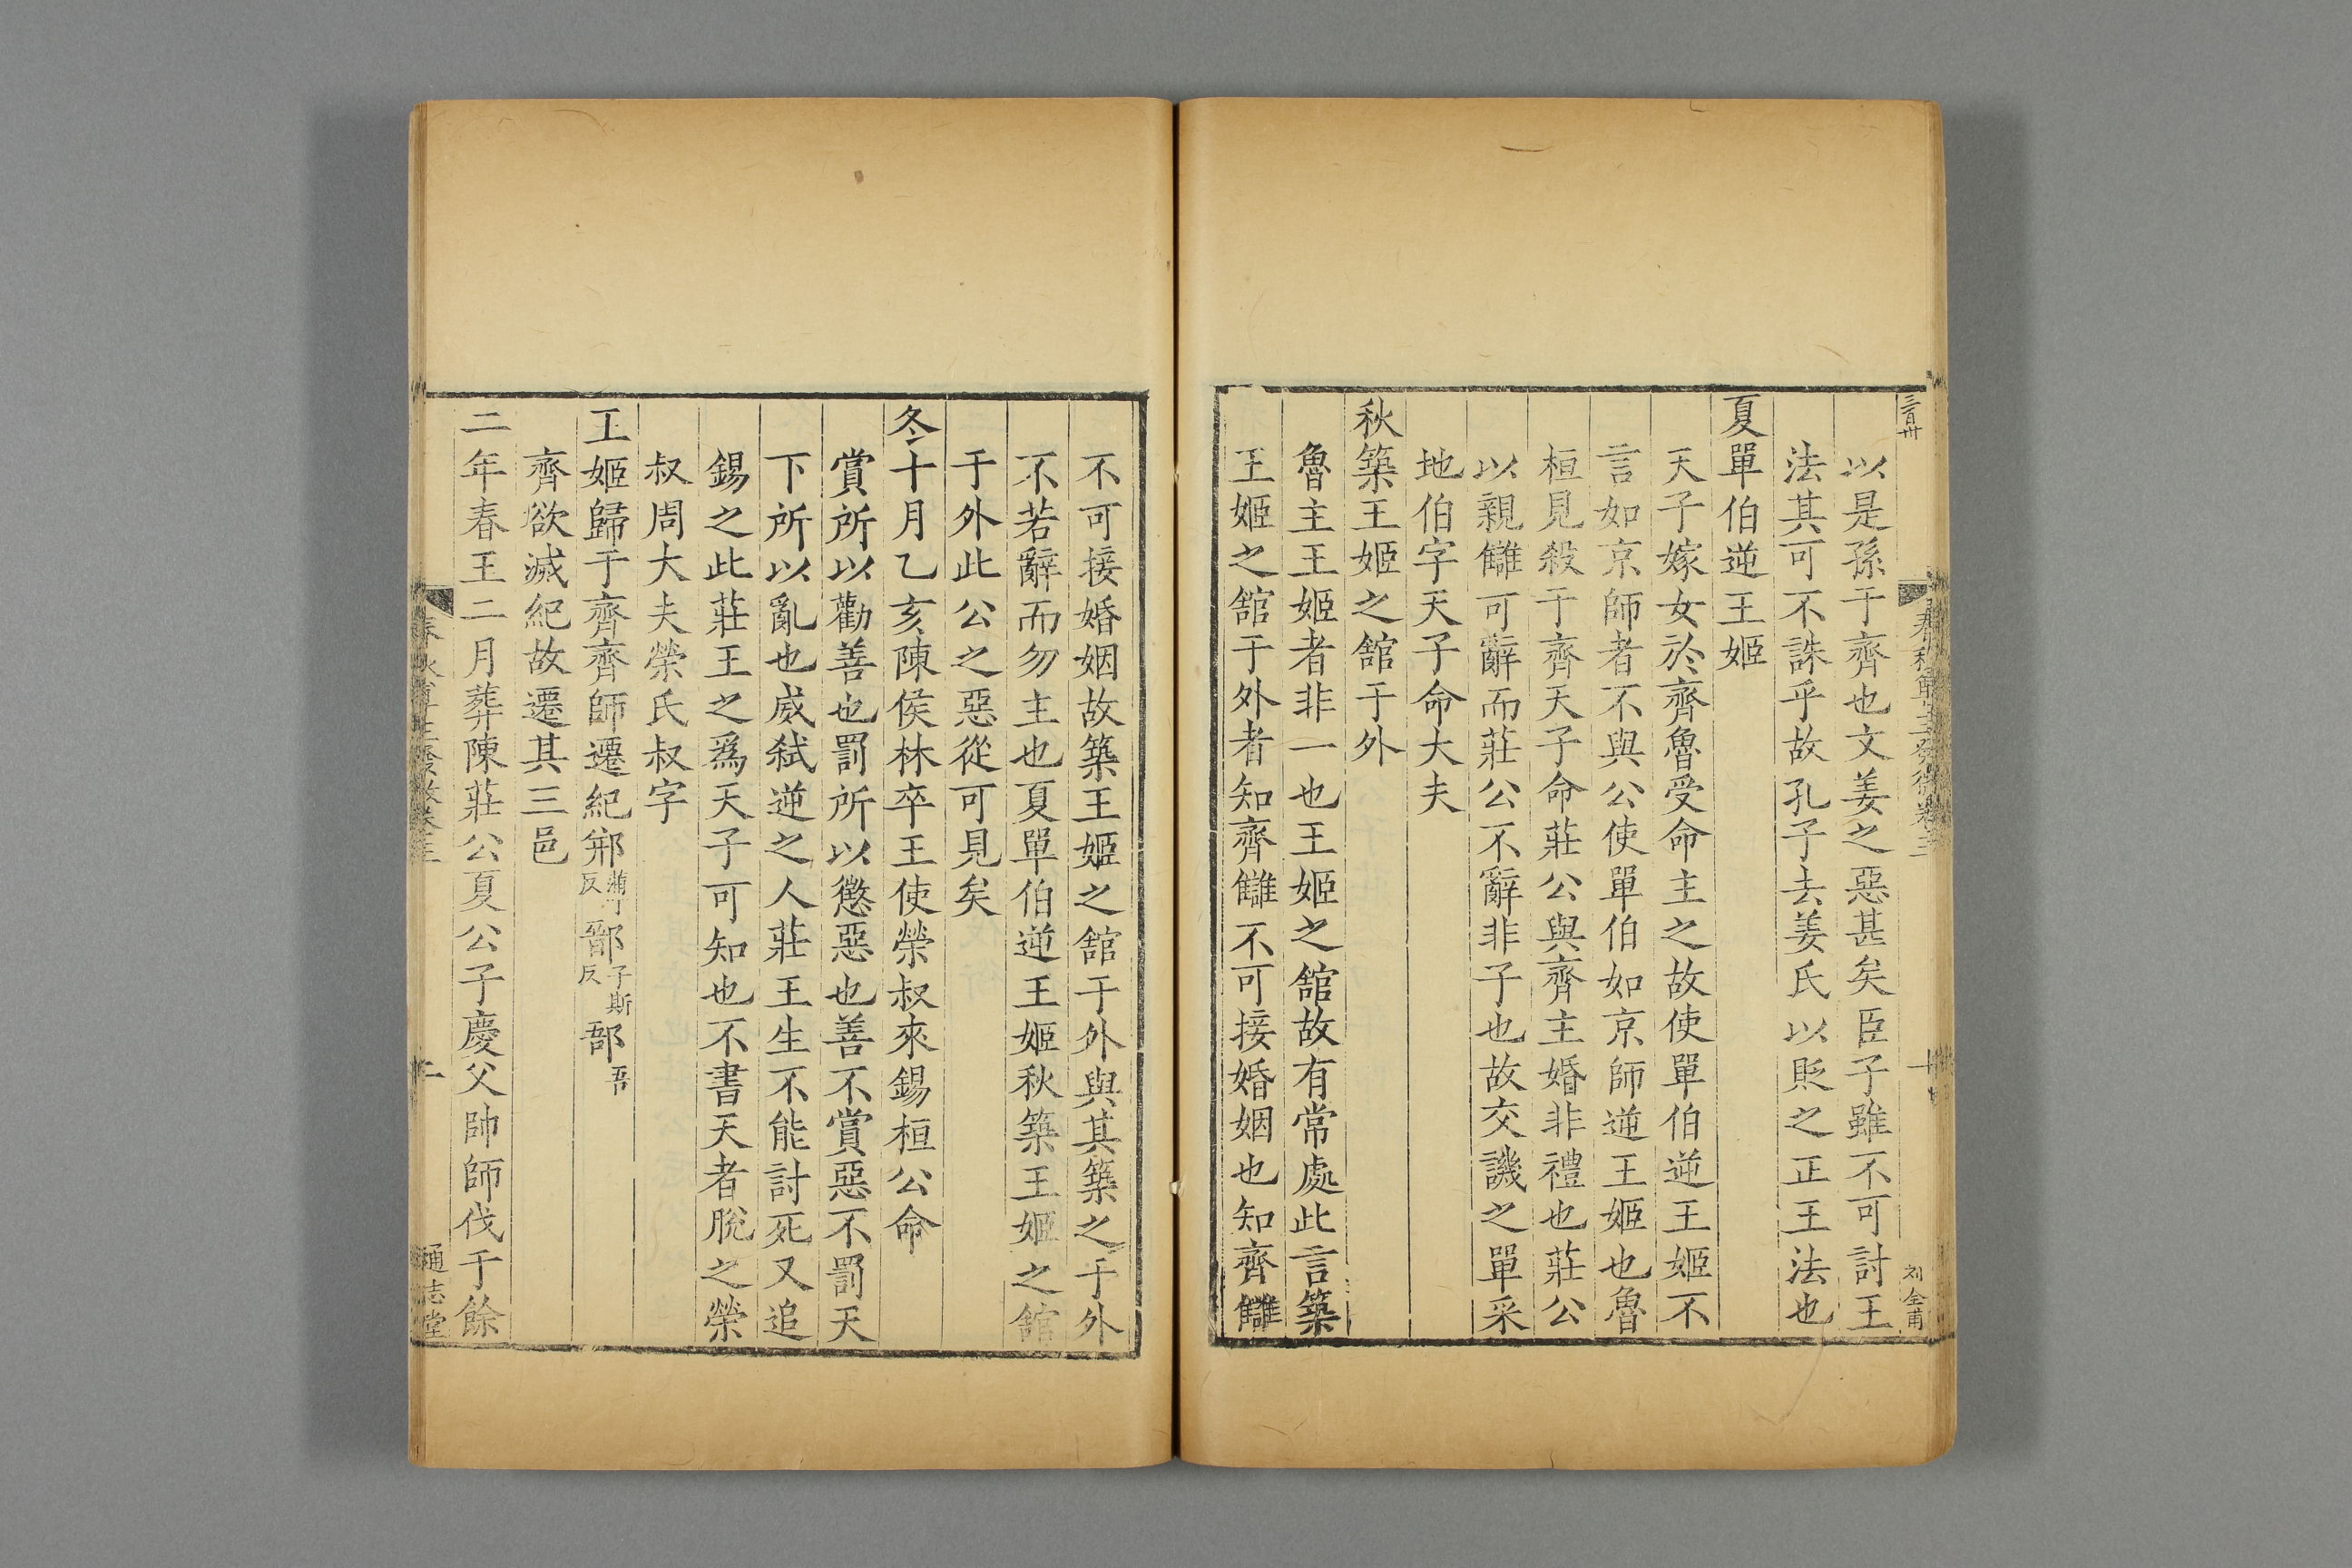 三百卅
以是孫于齊也文姜之惡甚矣臣子雖不可討王
法其可不誅乎故孔子去姜氏以貶之正王法也
夏單伯逆王姬
天子嫁女於齊魯受命主之故使單伯逆王姬不
言如京師者不與公使單伯如京師逆王姬也魯
桓見殺于齊天子命莊公與齊主婚非禮也莊公
以親讎可辭而莊公不辭非子也故交譏之單采
地伯字天子命大夫
秋築王姬之舘于外
魯主王姬者非一也王姬之舘故有常處此言築
王姬之舘于外者知齊讎不可接婚姻也知齊讎
春秋尊王發微卷三
十
刘全甫
不可接婚姻故築王姬之舘于外與其築之于外
不若辭而勿主也夏單伯逆王姬秋築王姬之舘
于外此公之惡從可見矣
冬十月乙亥陳侯林卒王使榮叔來錫桓公命
賞所以勸善也罰所以懲惡也善不賞惡不罰天
下所以亂也威弑逆之人莊王生不能討死又追
錫之此莊王之爲天子可知也不書天者脫之榮
叔周大夫榮氏叔字
王姬歸于齊齊師遷紀郱蒲丁反鄑子斯反郚吾
齊欲滅紀故遷其三邑
二年春王二月葬陳莊公夏公子慶父帥師伐于餘
春秋尊王發微卷三
十
通志堂